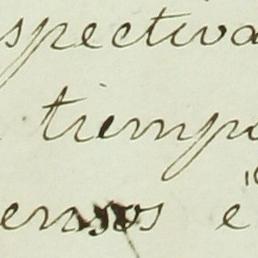 spectiva
tiempo
ensos e